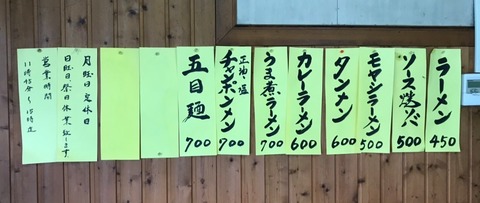 ラーメン
450
ソース焼ソバ
500
モヤシラーメン
500
タンメン
600
カレーラーメン
600
うま煮ラーメン
700
正油・塩
チャンポンメン
700
五目麺
700
月曜日定休日
日曜日祭日休業致します
営業時間
11時45分〜15時迄